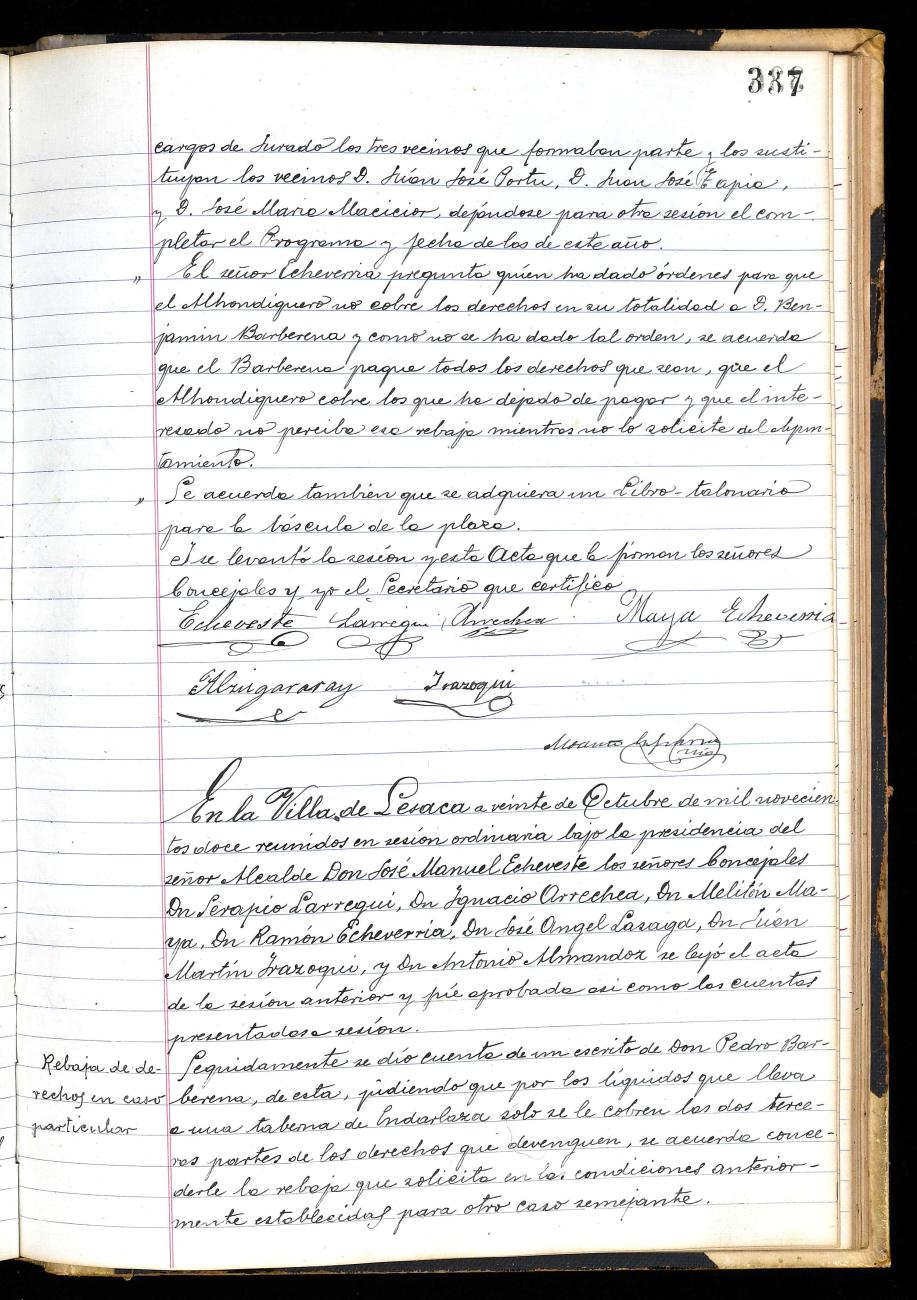 337
cargos de Jurado los tres vecinos que formaban parte y los susti-
tuyan los vecinos D. Júan José Portu, D. Juan José Tapia,
y D. José Maria Macicior, dejándose para otra sesión el com-
pletar el Programa y fecha de las de este año.
" El señor Echeverria pregunta quíen ha dado órdenes para que
el Alhondiguero no cobre los derechos en su totalidad a D. Ben-
jamin Barberena y como no se ha dado tal orden, se acuerda
que el Barberena pague todos los derechos que sean, que el
Alhondiguero cobre los que ha dejado de pagar y que el inte-
resado no perciba esa rebaja mientras no lo solicite del Ayun-
tamiento.
" Se acuerda también que se adquiera un Libro-talonario
para la báscula de la plaza.
Y se levantó la sesión y esta Acta que la firman los señores
Concejales y yo el Secretario que certifico
Echeveste Larregui Arrechea Maya Echeverria
Alzugararay Irazoqui
En la Villa de Lesaca a veinte de Octubre de mil novecien-
tos doce reunidos en sesion ordinaria bajo la presidencia del
señor Alcalde Don José Manuel Echeveste los señores Concejales
Dn Serapio Larregui, Dn Ignacio Arrechea, Dn Melitón Ma-
ya, Dn Ramón Echeverria, Dn José Angel Lasaga, Dn Júan
Martín Irazoqui, y Dn Antonio Almandoz se leyó el acta
de la sesión anterior y fúe aprobada asi como las cuentas
presentadas a sesión.
Rebaja de de-
rechos en caso
particular
Seguidamente se dío cuenta de un escrito de Don Pedro Bar-
berena, de esta, pidiendo que por los líquidos que lleva
a una taberna de Endarlaza solo se le cobren las dos terce-
ras partes de los derechos que devenguen, se acuerda conce-
derle la rebaja que solicita en las condiciones anterior-
mente establecidas para otro caso semejante.